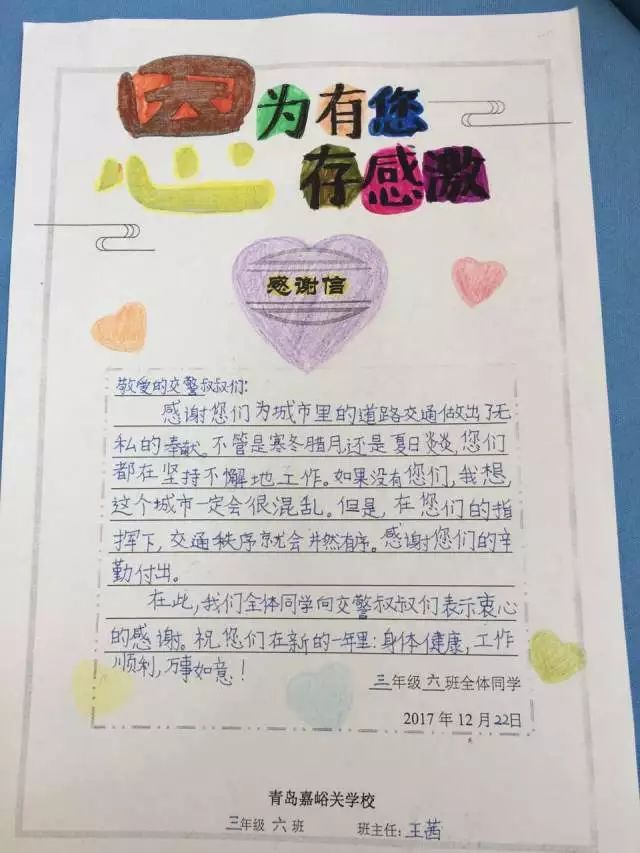 因为有您
心存感激
感谢信
敬爱的交警叔叔们：
感谢您们为城市里的道路交通做出了无
私的奉献。不管是寒冬腊月，还是夏日炎炎，您们
都在坚持不懈地工作。如果没有您们，我想，
这个城市一定会很混乱。但是，在您们的指
挥下，交通秩序就会井然有序。感谢您们的辛
勤付出。
在此，我们全体同学向交警叔叔们表示衷心
的感谢。祝您们在新的一年里：身体健康，工作
顺利，万事如意！
三年级六班全体同学
2017年12月22日
青岛嘉峪关学校
三年级 六班 班主任：王茜